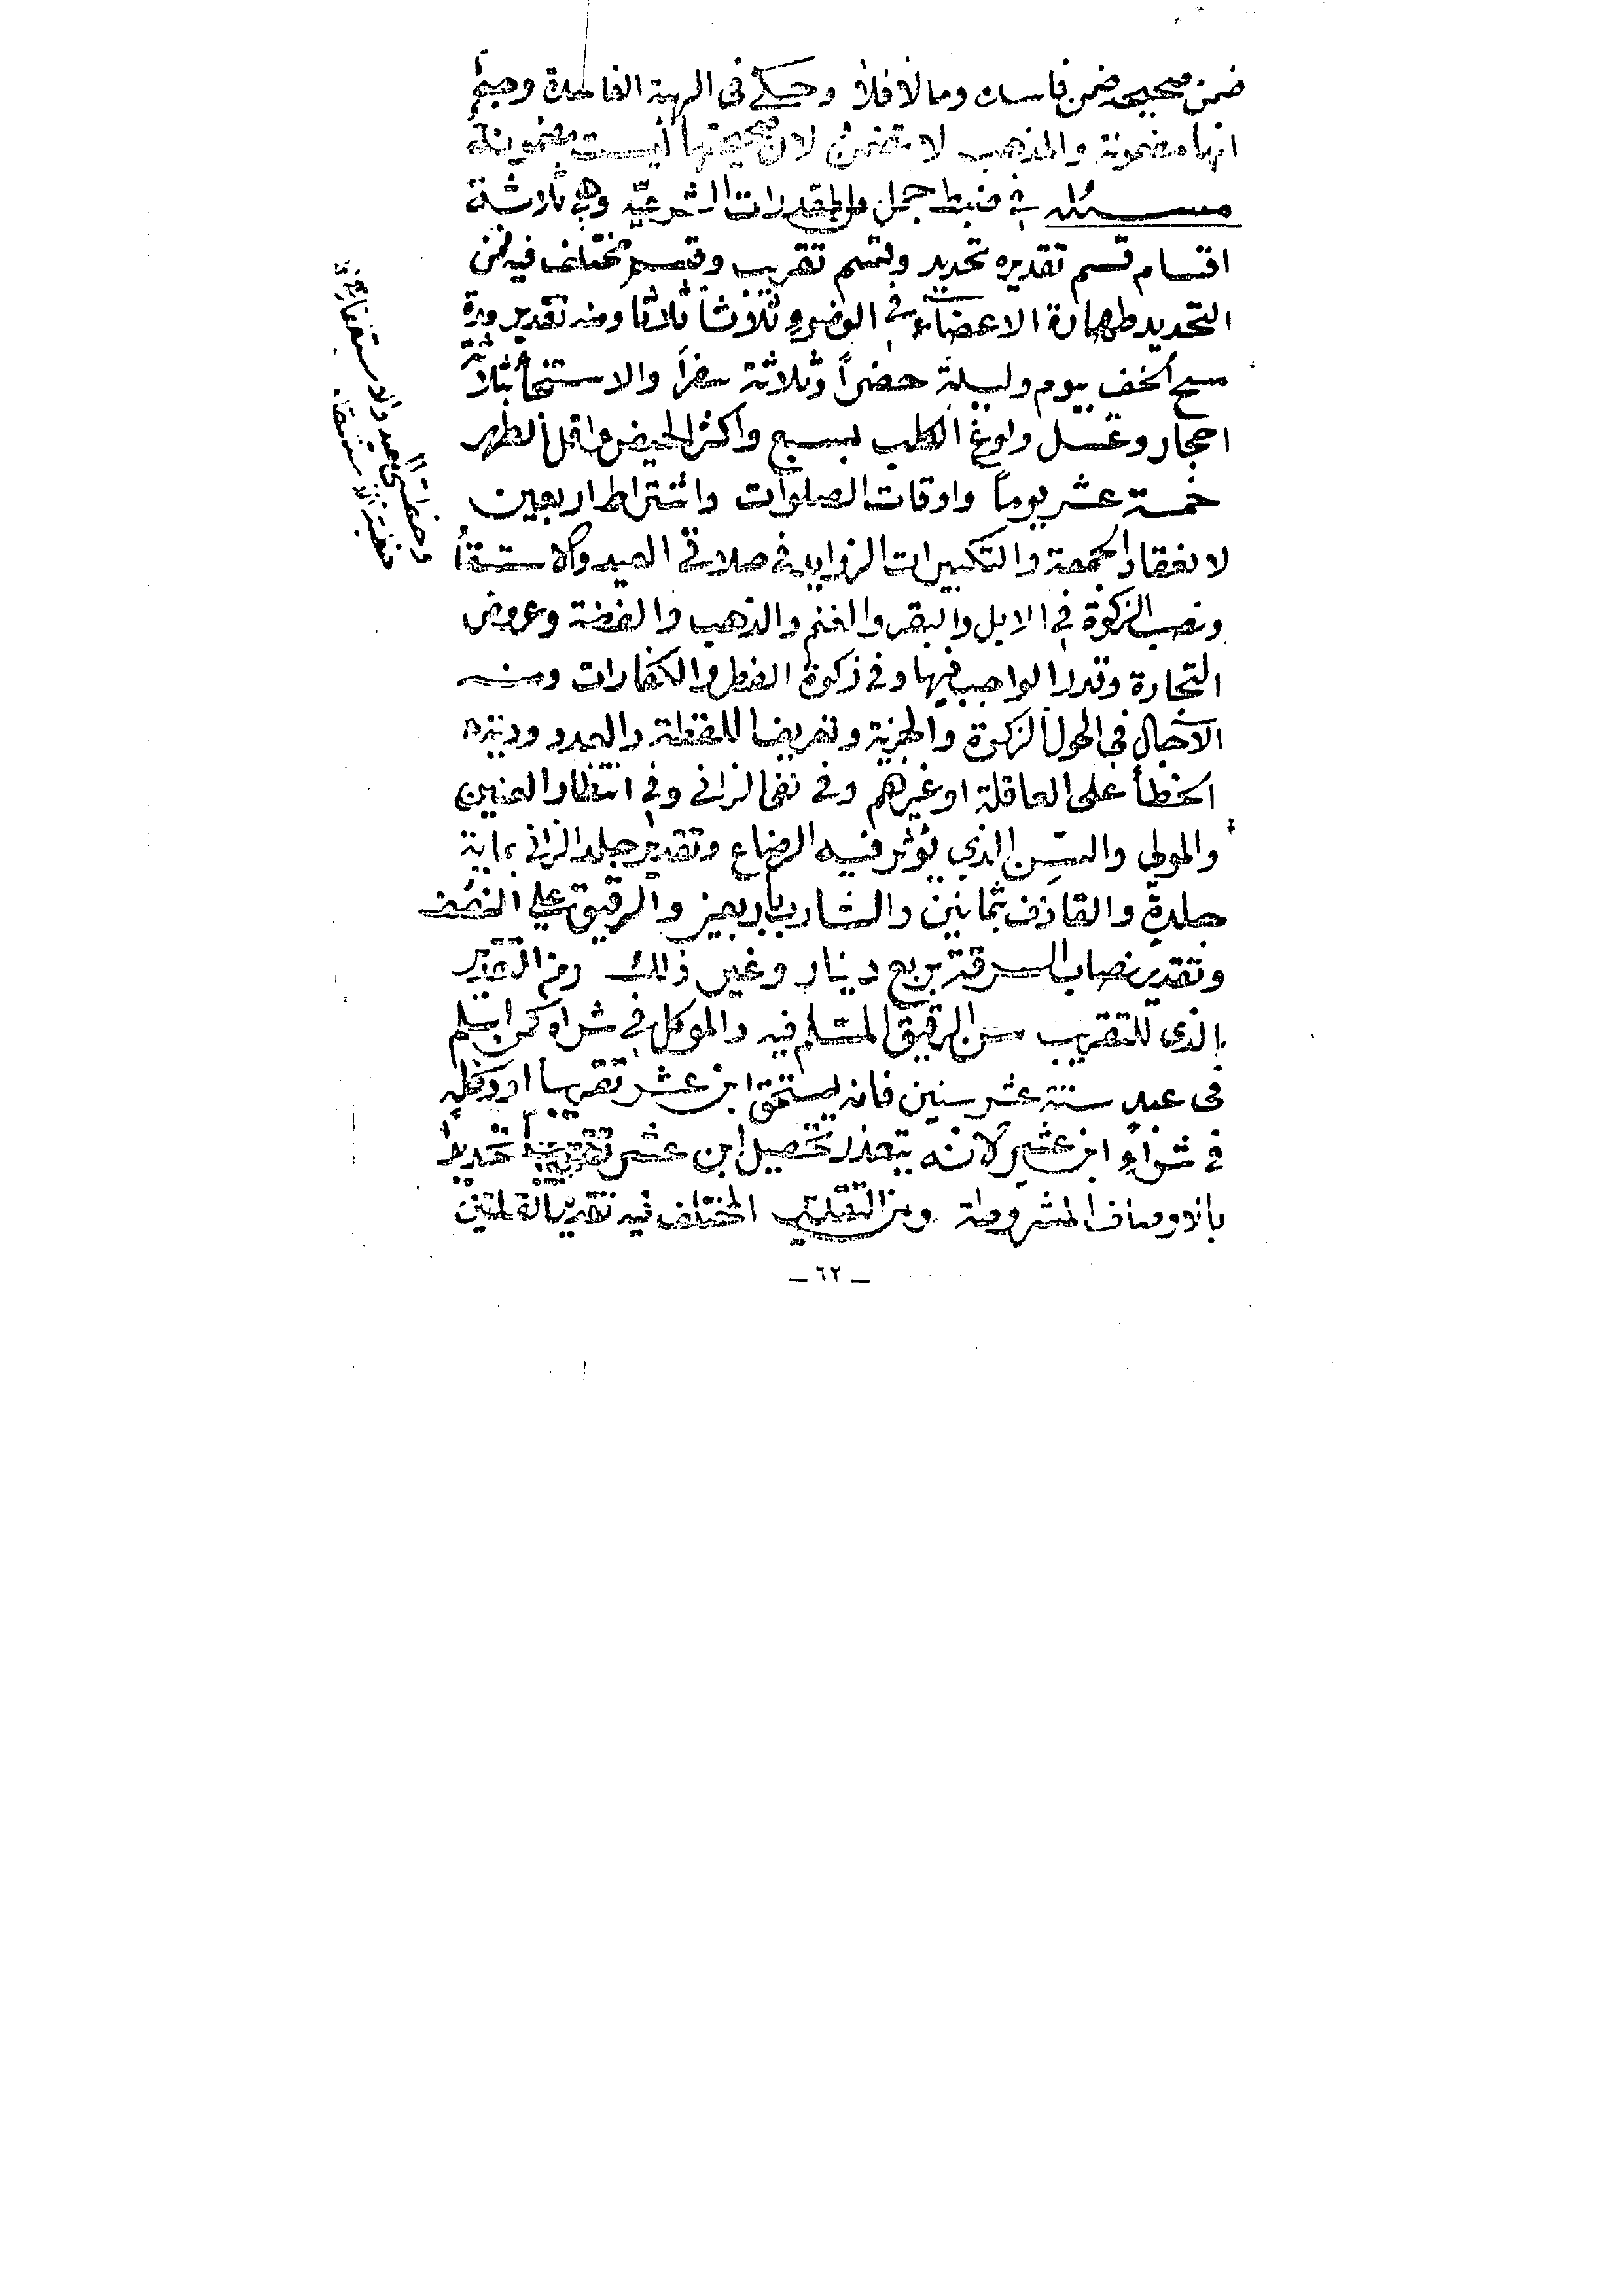 ضمن صحيحه ضمن فاسده ومالا فلا وحكي في الهبة الفاسدة وجه
انها مضمونة والمذهب لا تضمن لان صحيحتها ليست بمضمونة
مسئلة في ضبط جمل من المقدرات الشرعية وهي ثلاثة
اقسام قسم تقديره تحديد وقسم تقريب وقسم مختلف فيه فمن
التحديد طهارة الاعضاء في الوضوء ثلاثا ثلاثا ومنه تقدير مدة
مسح الخف بيوم وليلة حضراً وثلاثة سفراً والاستنجاء بثلاثة
احجار وغسل ولوغ الكلب بسبع واكثر الحيض واقل الطهر
خمسة عشر يوماً واوقات الصلوات واشتراط اربعين
لانعقاد الجمعة والتكبيرات الزوايد في صلاتي العيد والاستسقاء
ونصب الزكوة في الابل والبقر والغنم والذهب والفضة وعروض
التجارة وقدر الواجب فيها وفي زكوة الفطر والكفارات ومنه
الآجال في الحول الزكوة والجزية وتعريف اللقطة والعدد ودية
الخطأ على العاقلة او غيرهم وفي نفي الزاني وفي انتظار العنين
والمولي والسن الذي يؤثر فيه الرضاع وتقدير جلد الزاني بماية
جلدة والقاذف بثمانين والشارب باربعين والرقيق على النصف
وتقدير نصاب السرقة بربع دينار وغير ذلك ومن التقدير
الذي للتقريب سن الرقيق المسلم فيه والموكل في شراه كمن اسلم
في عبد سنه عشر سنين فانه يستحق ابن عشر تقريبا او وكله
في شراء ابن عشر لانه يتعذر تحصيل ابن عشر تحديدا
بالاوصاف المشروطة ومن التقدير المختلف فيه تقدير القلتين
وخطبتي العيد والاستغفار في
خطبة الاستسقاء
_ ٦٢ _